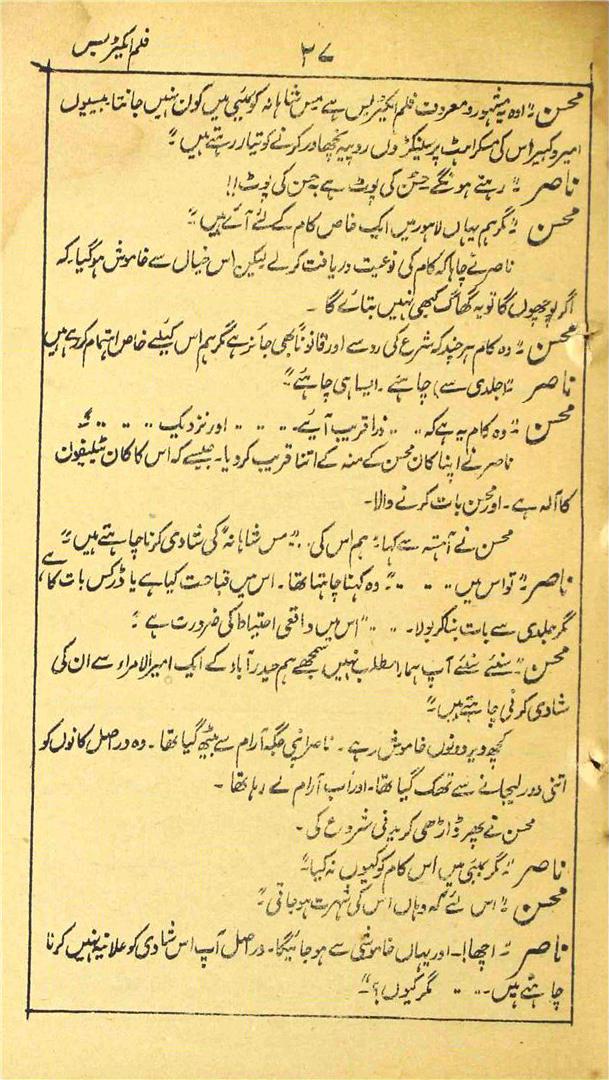 فلم ایکٹریس
۲۷
محسن "اوہ یہ مشہور و معروف فلم ایکٹریس ہے مِس شاہانہ کو بمبئی میں کون نہیں جانتا بیسیوں
امیر و کبیر اس کی مسکراہٹ پر سینکڑوں روپیہ نچھاور کرنے کو تیار رہتے ہیں"
ناصر "رہتے ہونگے حُسن کی پوٹ ہے حسن کی پوٹ!!
محسن "مگر ہم یہاں لاہور میں ایک خاص کام کے لئے آئے ہیں"
ناصر نے چاہا کہ کام کی نوعیت دریافت کرلے لیکن اس خیال سے خاموش ہوگیا۔ کہ
اگر پوچھوں گا تو یہ گھاگ کبھی نہیں بتائے گا۔
محسن "وہ کام ہر چند کہ شرع کی رو سے اور قانوناً بھی جائز ہے مگر ہم اس کیلئے خاص اہتمام کر رہے ہیں
ناصر "(جلدی سے) چاہئے۔ ایسا ہی چاہئے"
محسن "وہ کام یہ ہے کہ ۔۔ ذرا قریب آیئے ۔۔۔۔ اور نزدیک ۔۔۔۔"
ناصر نے اپنا کان محسن کے منہ کے اتنا قریب کردیا۔ جیسے کہ اس کا کان ٹیلیفون
کا آلہ ہے۔ اور محسن بات کرنے والا۔
محسن نے آہستہ سے کہا "ہم اس کی ۔۔ "مس شاہانہ" کی شادی کرنا چاہتے ہیں"
ناصر "تو اس میں ۔۔۔۔" وہ کہنا چاہتا تھا۔ اس میں قباحت کیا ہے یا ڈر کس بات کا ہے،
مگر جلدی سے بات بنا کر بولا ۔۔۔ "اس میں واقعی احتیاط کی ضرورت ہے"
محسن "سنئے سنئے آپ ہمارا مطلب نہیں سمجھے ہم حیدرآباد کے ایک امیر الامراء سے ان کی
شادی کرنی چاہتے ہیں"
کچھ دیر دونوں خاموش رہے۔ ناصر اپنی جگہ آرام سے بیٹھ گیا تھا۔ وہ دراصل کانوں کو
اتنی دور لیجانے سے تھک گیا تھا۔ اور اب آرام لے رہا تھا۔
محسن نے پھر ڈاڑھی کریدنی شروع کی۔
ناصر "مگر بمبئی میں اس کام کو کیوں نہ کیا"
محسن "اس لئے کہ وہاں اس کی شہرت ہوجاتی"
ناصر "اچھا!۔ اور یہاں خاموشی سے ہوجائیگا۔ دراصل آپ اس شادی کو علانیہ نہیں کرنا
چاہتے ہیں ۔۔۔ مگر کیوں؟"